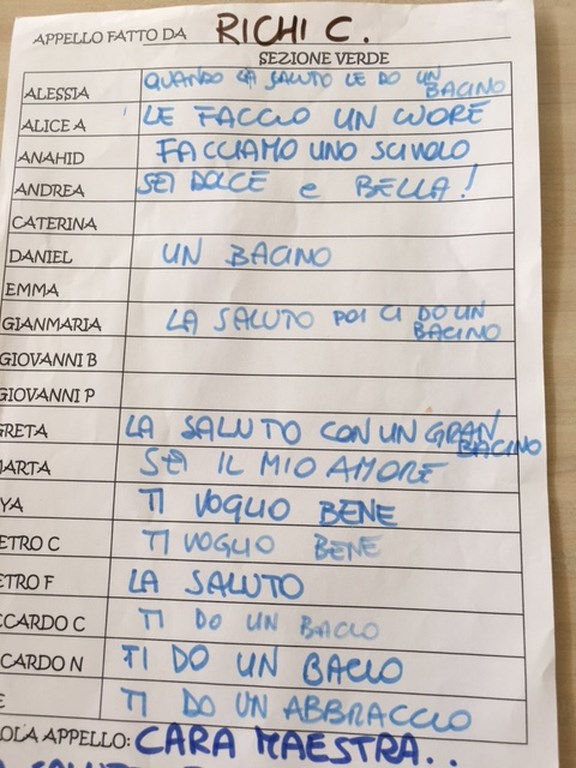 APPELLO FATTO DA RICHI C.
SEZIONE VERDE
ALESSIA QUANDO LA SALUTO LE DO UN BACINO
ALICE A LE FACCIO UN CUORE
ANAHID FACCIAMO UNO SCIVOLO
ANDREA SEI DOLCE e BELLA!
CATERINA
DANIEL UN BACINO
EMMA
GIANMARIA LA SALUTO POI CI DO UN BACINO
GIOVANNI B
GIOVANNI P
GRETA LA SALUTO CON UN GRAN BACINO
MARTA SEI IL MIO AMORE
YA TI VOGLIO BENE
ETRO C TI VOGLIO BENE
ETRO F LA SALUTO
CCARDO C TI DO UN BACIO
CCARDO N TI DO UN BACIO
E TI DO UN ABBRACCIO
OLA APPELLO: CARA MAESTRA..